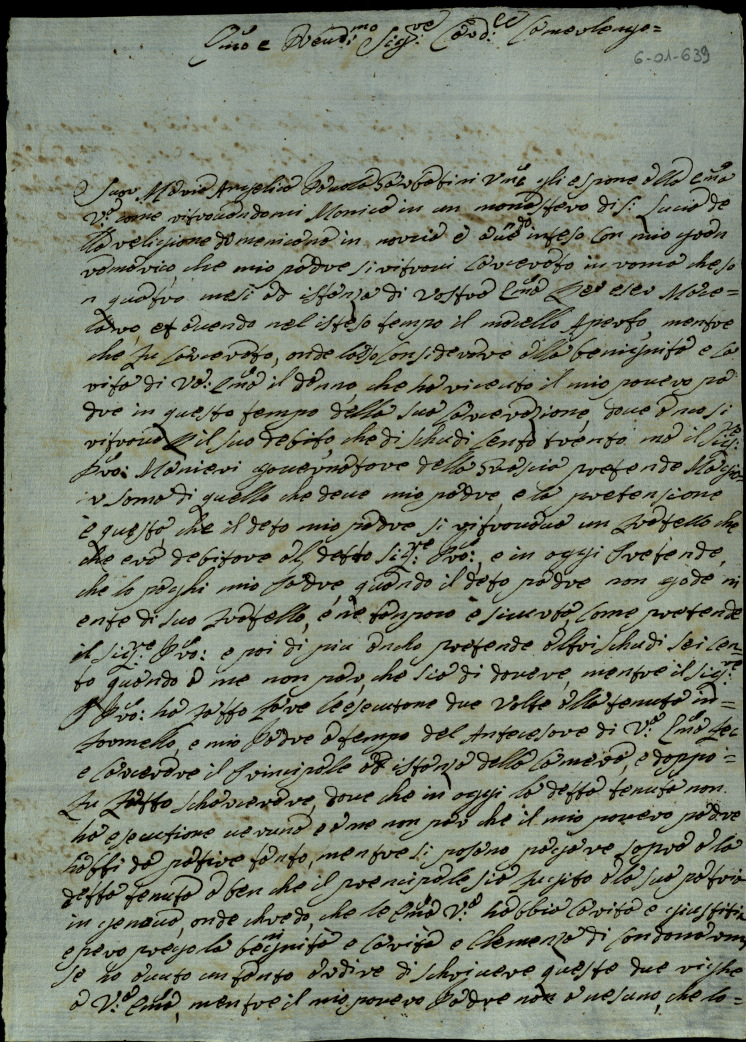 Emo e Reuerdimo Sigre Card.le Camerlengo=
6-01-639
Suor Maria Angelica Paula Sarbatini Vmte gli espone alla Ema
V.a come ritrouandomi Monica in un monastero di S. Lucia de
lla religione domenicana in norcia è auendo inteso con mio gran
ramarico, che mio padre si ritroui Carcerato in roma che so
n quatro mesi ad istanza di Vostra Ema Per eser Mace-
laro, et auendo nel isteso tempo il macello Aperto, mentre
che fu Carcerato, onde lascio Considerare alla benignità e Ca
rità di Va: Ema il danno, che ha riceuto il mio pouero pa
dre in questo tempo della sua Carcerazione, doue a no si
ritroua il suo debito, che di schudi Cento trenta ma il Sigre
Pro: Manieri gouernatore della Grascia pretende Magio
r soma di quello che deue mio padre e la pretensione
è questa che il deto mio padre si ritrouaua un fratello che
che era debitore al detto Sigre Pro:, e in oggi Pretende,
che lo paghi mio Padre, quando il deto padre non gode ni
ente di suo fratello, è ne tanpoco è sicurtà, Come pretende
il Sigre Pro: e poi di piu ancho pretende altri schudi sei cen-
to quando a me non par, che sia di douere, mentre il Sigre
Pro: ha fatto fare le esecutione due Volte alla tenuta in=
formello, e mio Padre a tempo del Antecesore di V.a Ema fec
e Carcerare il Principale ad istanza della Camera, e doppo=
fu fatto scharcerare, doue che in oggi la detta tenuta non
ha esecutione ueruna e a me non par che il mio pouero padre
habbi da patire tanto, mentre si posono pagare sopra a la
detta tenuta a ben che il prencipale sia fugito a la sua patria
in genaua, onde chredo, che le Ema V.a habbia Carità e giustitia
e pero prego la benignità e Carità e Clemenza di Condonarmi
se ho auuto un tanto ardire di schriuere queste due righe
a V.a Ema, mentre il mio pouero Padre non a nesuno, che lo=